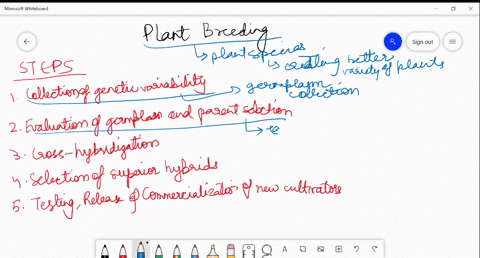 Microsoft Whiteboard
Plant Breeding
Sign out
plant species
creating better
variety of plants
STEPS
1. Collection of genetic variability
germplasm
collection
2. Evaluation of germplasm and parent selection
3. Cross-hybridization
4. Selection of superior hybrids
5. Testing, Release of Commercialization of new cultivators